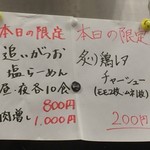 本日の限定
追いがつお
塩らーめん
昼・夜各10食
800円
肉増し 1,000円
本日の限定
炙り鶏レア
チャーシュー
(モモ2枚、ムネ1枚)
200円